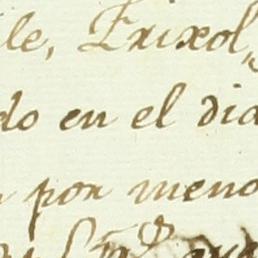 le, Frixol
do en el dia
por meno